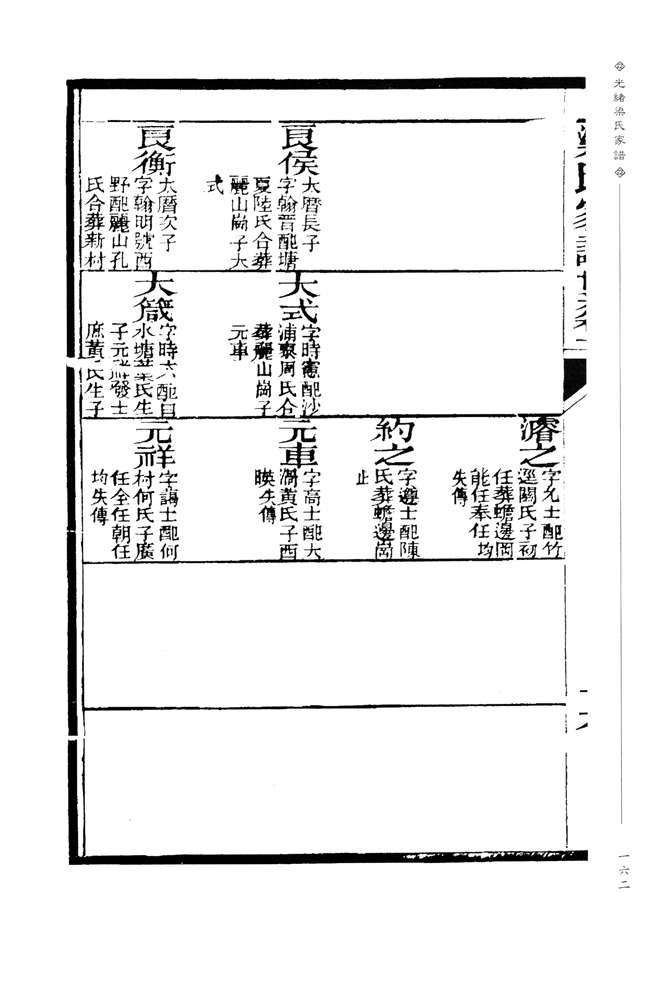 光緒梁氏家譜
一六二
良侯
太曆長子
字翰晋配塘
夏陸氏合葬
麗山崗子大
式
良衡
太曆次子
字翰明號西
野配麗山孔
氏合葬新村
大式
字時憲配沙
浦寨周氏合
葬麗山崗子
元車
大箴
字時六配白
水塘葉氏生
子元祥發士
庶黃氏生子
濬之
字允士配竹
逕關氏子初
任葬蟾邊岡
能任奉任均
失傳
約之
字遵士配陳
氏葬蟾邊崗
止
元車
字高士配大
渦黃氏子西
暎失傳
元祥
字謁士配何
村何氏子廣
任全任朝任
均失傳